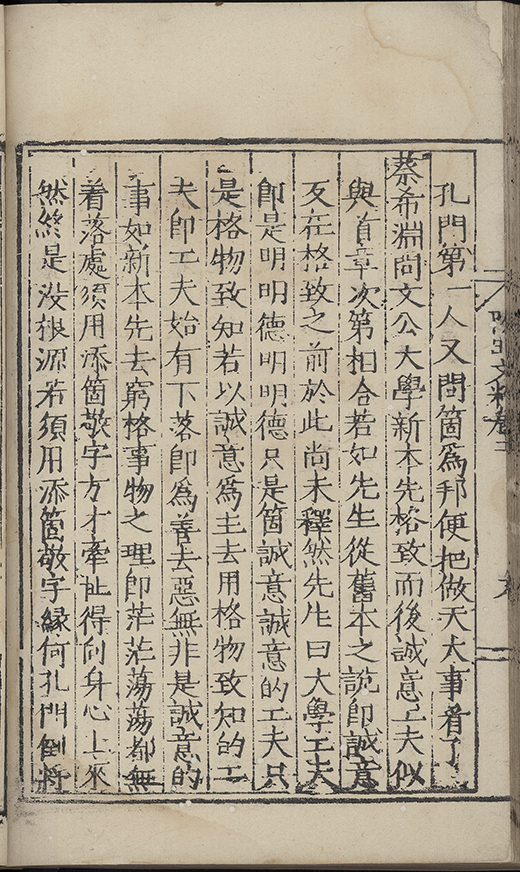 孔門第一人又問箇爲邦便把做天大事看了
蔡希淵問文公大學新本先格致而後誠意工夫似
與首章次第相合若如先生從舊本之說卽誠意
反在格致之前於此尚未釋然先生曰大學工夫
卽是明明德明明德只是箇誠意誠意的工夫只
是格物致知若以誠意爲主去用格物致知的工
夫卽工夫始有下落卽爲善去惡無非是誠意的
事如新本先去窮格事物之理卽茫茫蕩蕩都無
着落處須用添箇敬字方才牽扯得向身心上來
然終是没根源若須用添箇敬字緣何孔門倒將